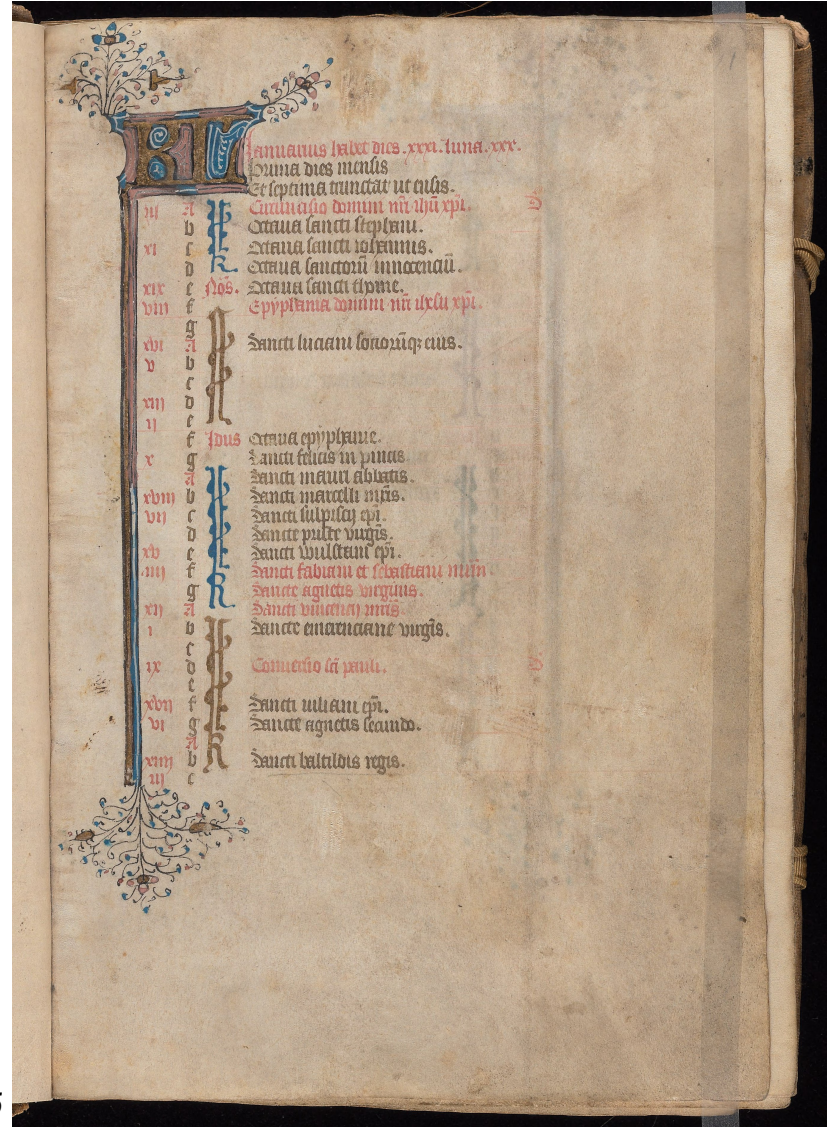 KL Januarius habet dies .xxxi. luna .xxx.
Prima dies mensis
Et septima truncat ut ensis.
iij A Circumcisio domini nri ihu xpi.
b Octaua sancti stephani.
xi c Octaua sancti iohannis.
d Octaua sanctorū innocenciū.
xix e Nōs. Octaua sancti thome.
viij f Epyphania domini nri ihesu xpi.
g
xvi A Sancti luciani sociorūq; eius.
v b
c
xiij d
ij e
f Idus Octaua epyphanie.
x g Sancti felicis in pincis
A Sancti mauri abbatis.
xviij b Sancti marcelli mris.
vij c Sancti sulpicij epi.
d Sancte prisce virgis.
xv e Sancti wulstani epi.
iiij f Sancti fabiani et sebastiani
g Sancte agnetis virginis.
xij A Sancti vincencij mris
i b Sancte emerenciane virgis.
c
ix d Conuersio sci pauli.
e
xvij f Sancti iuliani epi.
vi g Sancte agnetis secundo.
A
xiiij b Sancti baltildis regis.
iij c